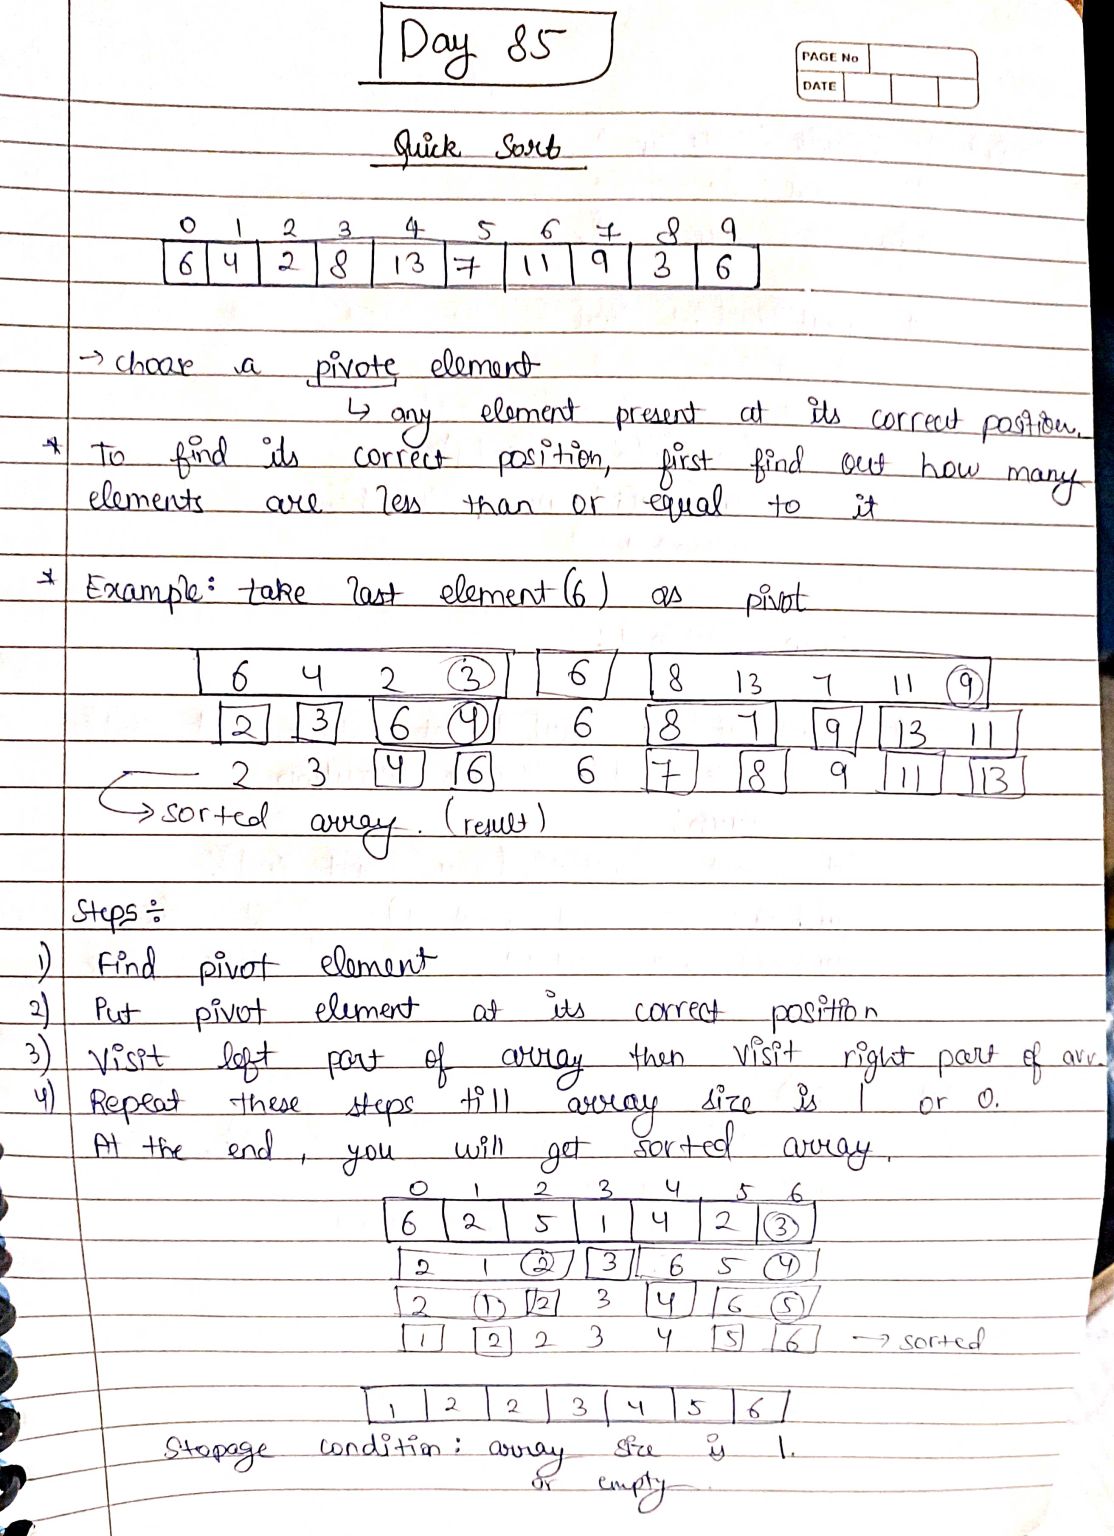 Day 85
PAGE No
DATE
Quick Sort
0 1 2 3 4 5 6 7 8 9
6 4 2 8 13 7 11 9 3 6
→ choose a pivote element
↳ any element present at its correct position.
* To find its correct position, first find out how many
elements are less than or equal to it
* Example: take last element (6) as pivot
6 4 2 3 6 8 13 7 11 9
2 3 6 4 6 8 7 9 13 11
2 3 4 6 6 7 8 9 11 13
→ sorted array. (result)
Steps ÷
1) Find pivot element
2) Put pivot element at its correct position
3) Visit left part of array then visit right part of arr.
4) Repeat these steps till array size is 1 or 0.
At the end, you will get sorted array.
0 1 2 3 4 5 6
6 2 5 1 4 2 3
2 1 2 3 6 5 4
2 1 2 3 4 6 5
1 2 2 3 4 5 6 → sorted
1 2 2 3 4 5 6
Stopage condition: array size is 1.
or empty